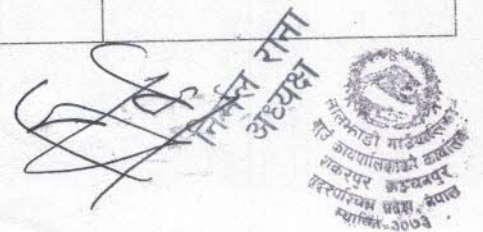 निर्मल राना
अध्यक्ष
गाउँ कार्यपालिकाको कार्यालय
शंकरपुर कञ्चनपुर
सुदूरपश्चिम प्रदेश, नेपाल
स्थापित-२०७३